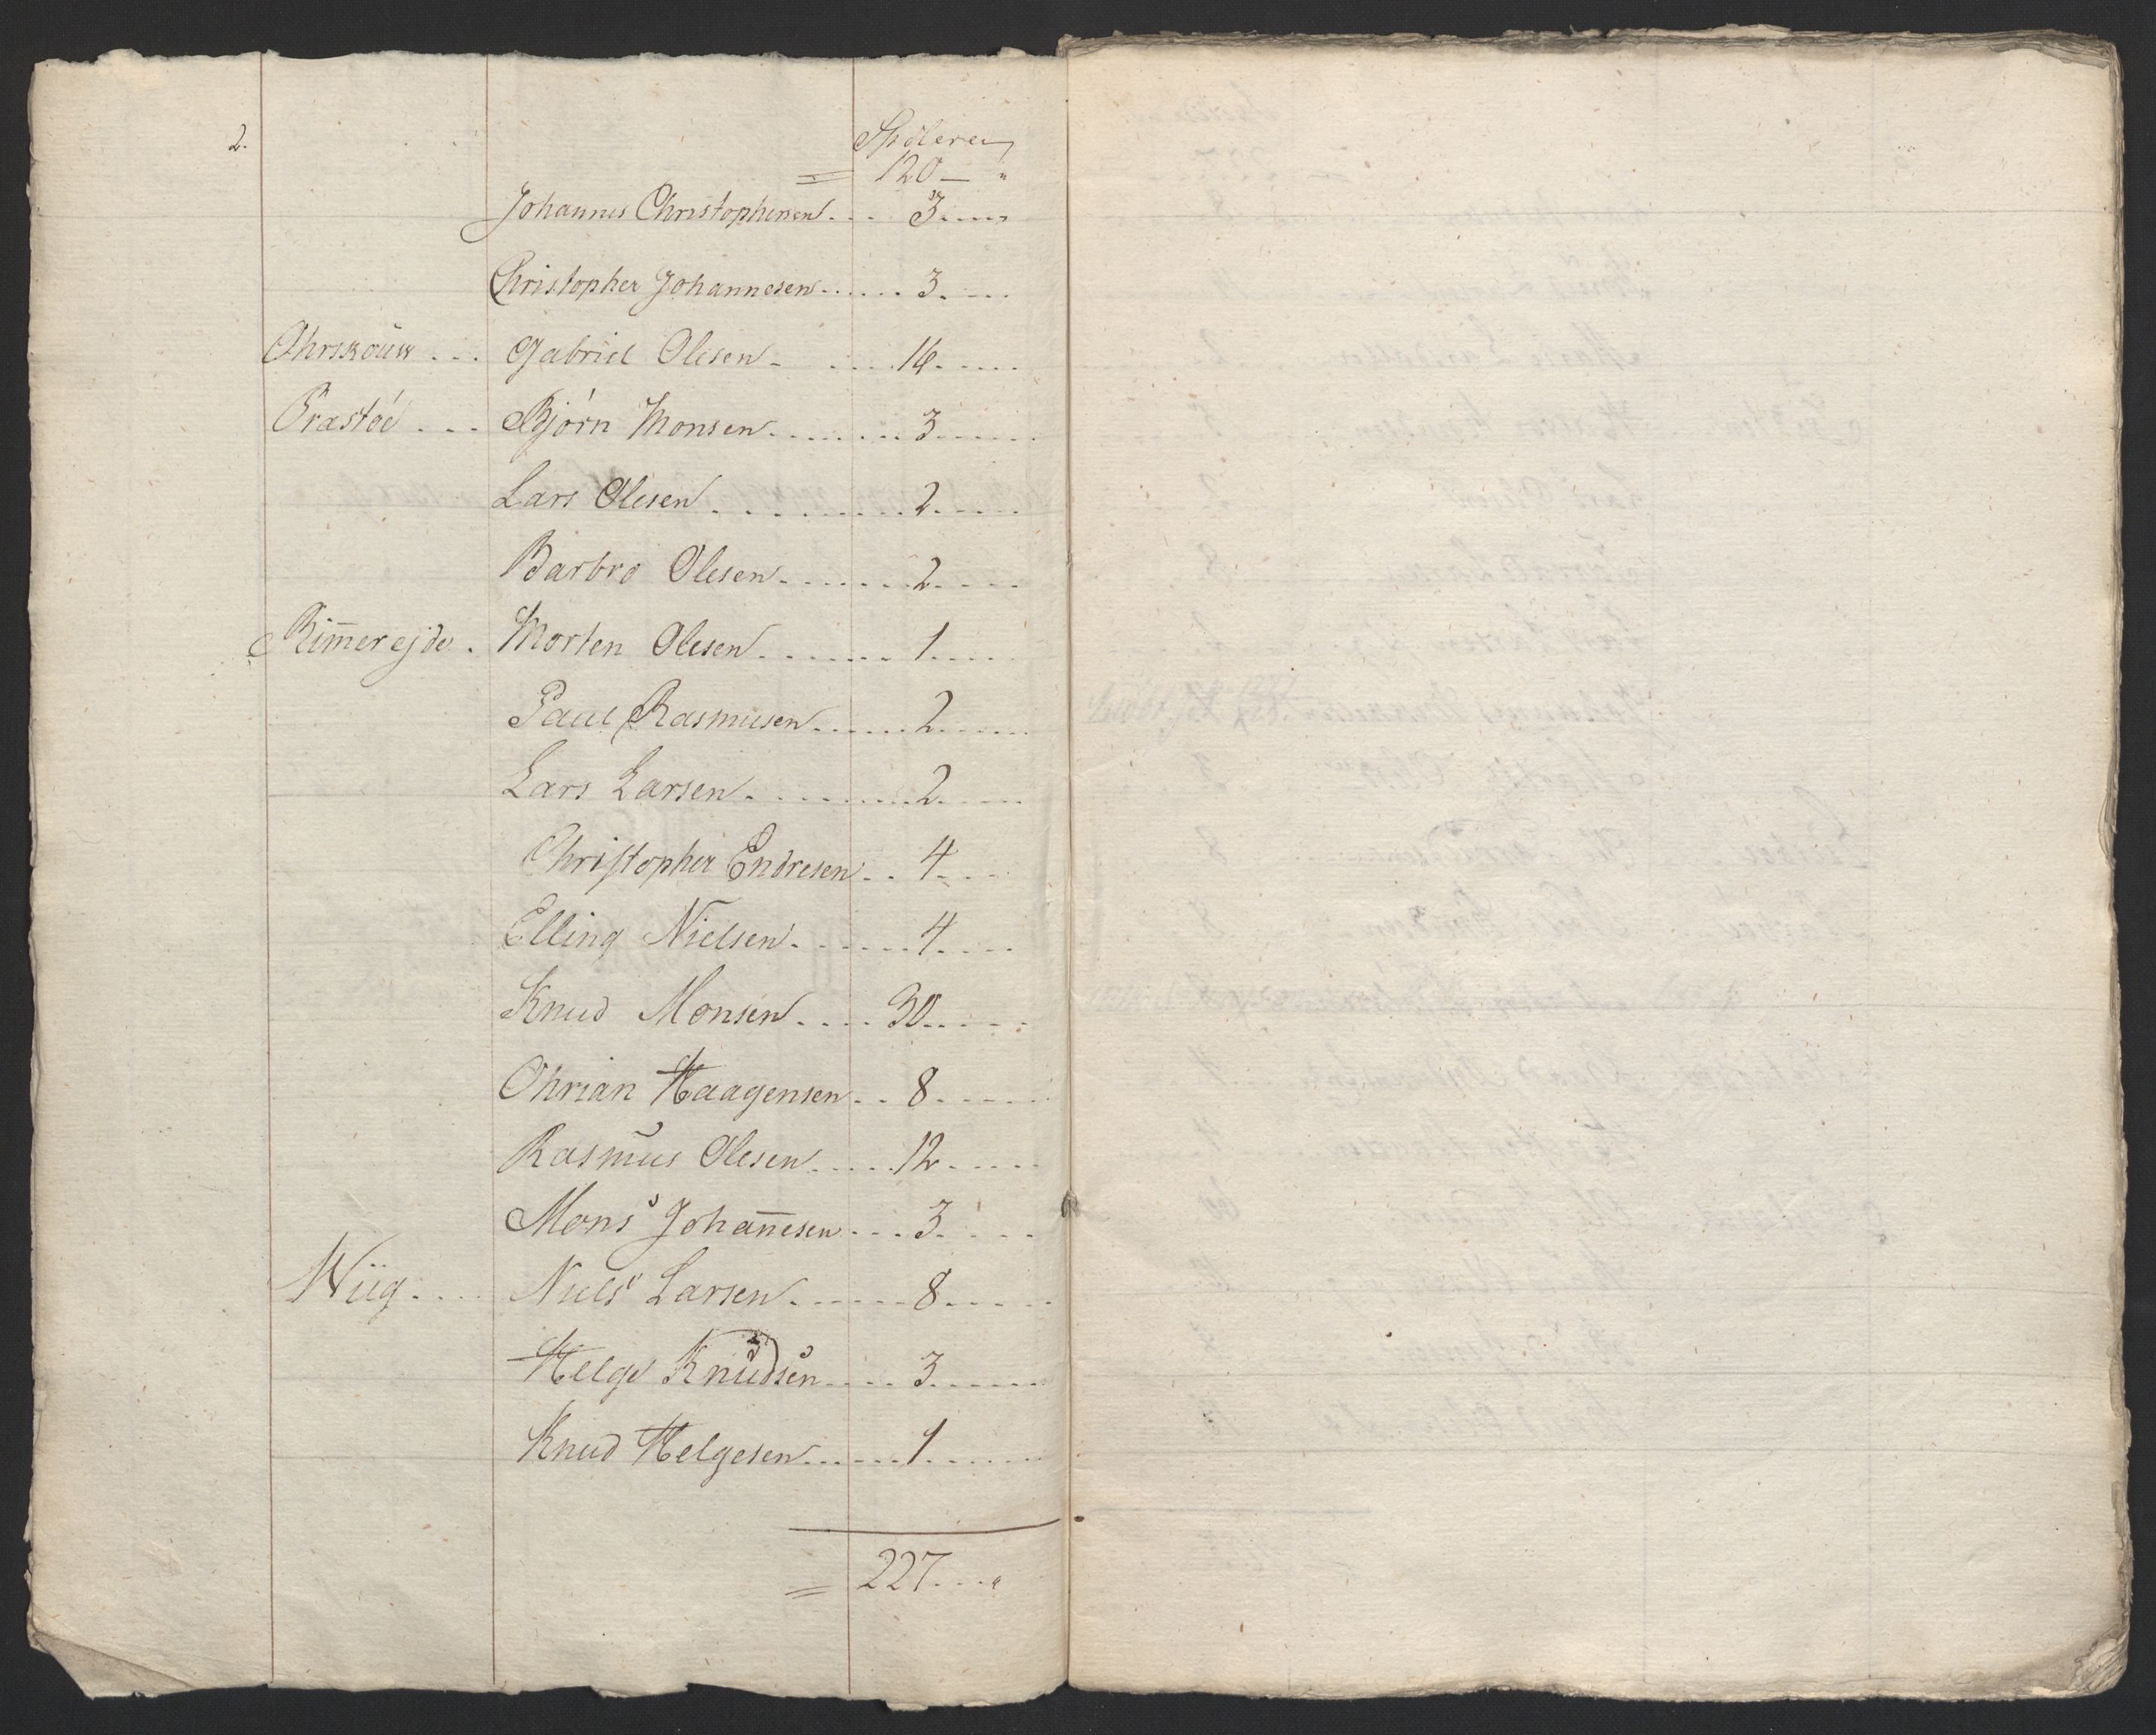 2.
Spdlerer
= 120 — "
Johannes Christophersen... 3....,
Christopher Johannesen...... 3. ...
Ohrskouw ... Gabriel Olesen - ....16.....
Præstøe ... Bjørn Monsen........3.....
Lars Olesen .........2.....
Barbro Olesen........2....
Rim̄erejde . Morten Olesen....... 1.....
Paul Rasmusen......2.....
Lars Larsen.........2....
Christopher Endresen.. 4....
Elling Nielsen.......4....
Knud Monsen....30.....
Chrian Haagensen.. 8......
Rasmus Olesen.....12.....
Mons Johan̄esen... 3.....
Wiig.... Niels Larsen......8......
Helge Knudsen....3......
Knud Helgesen......1......
= 227...."